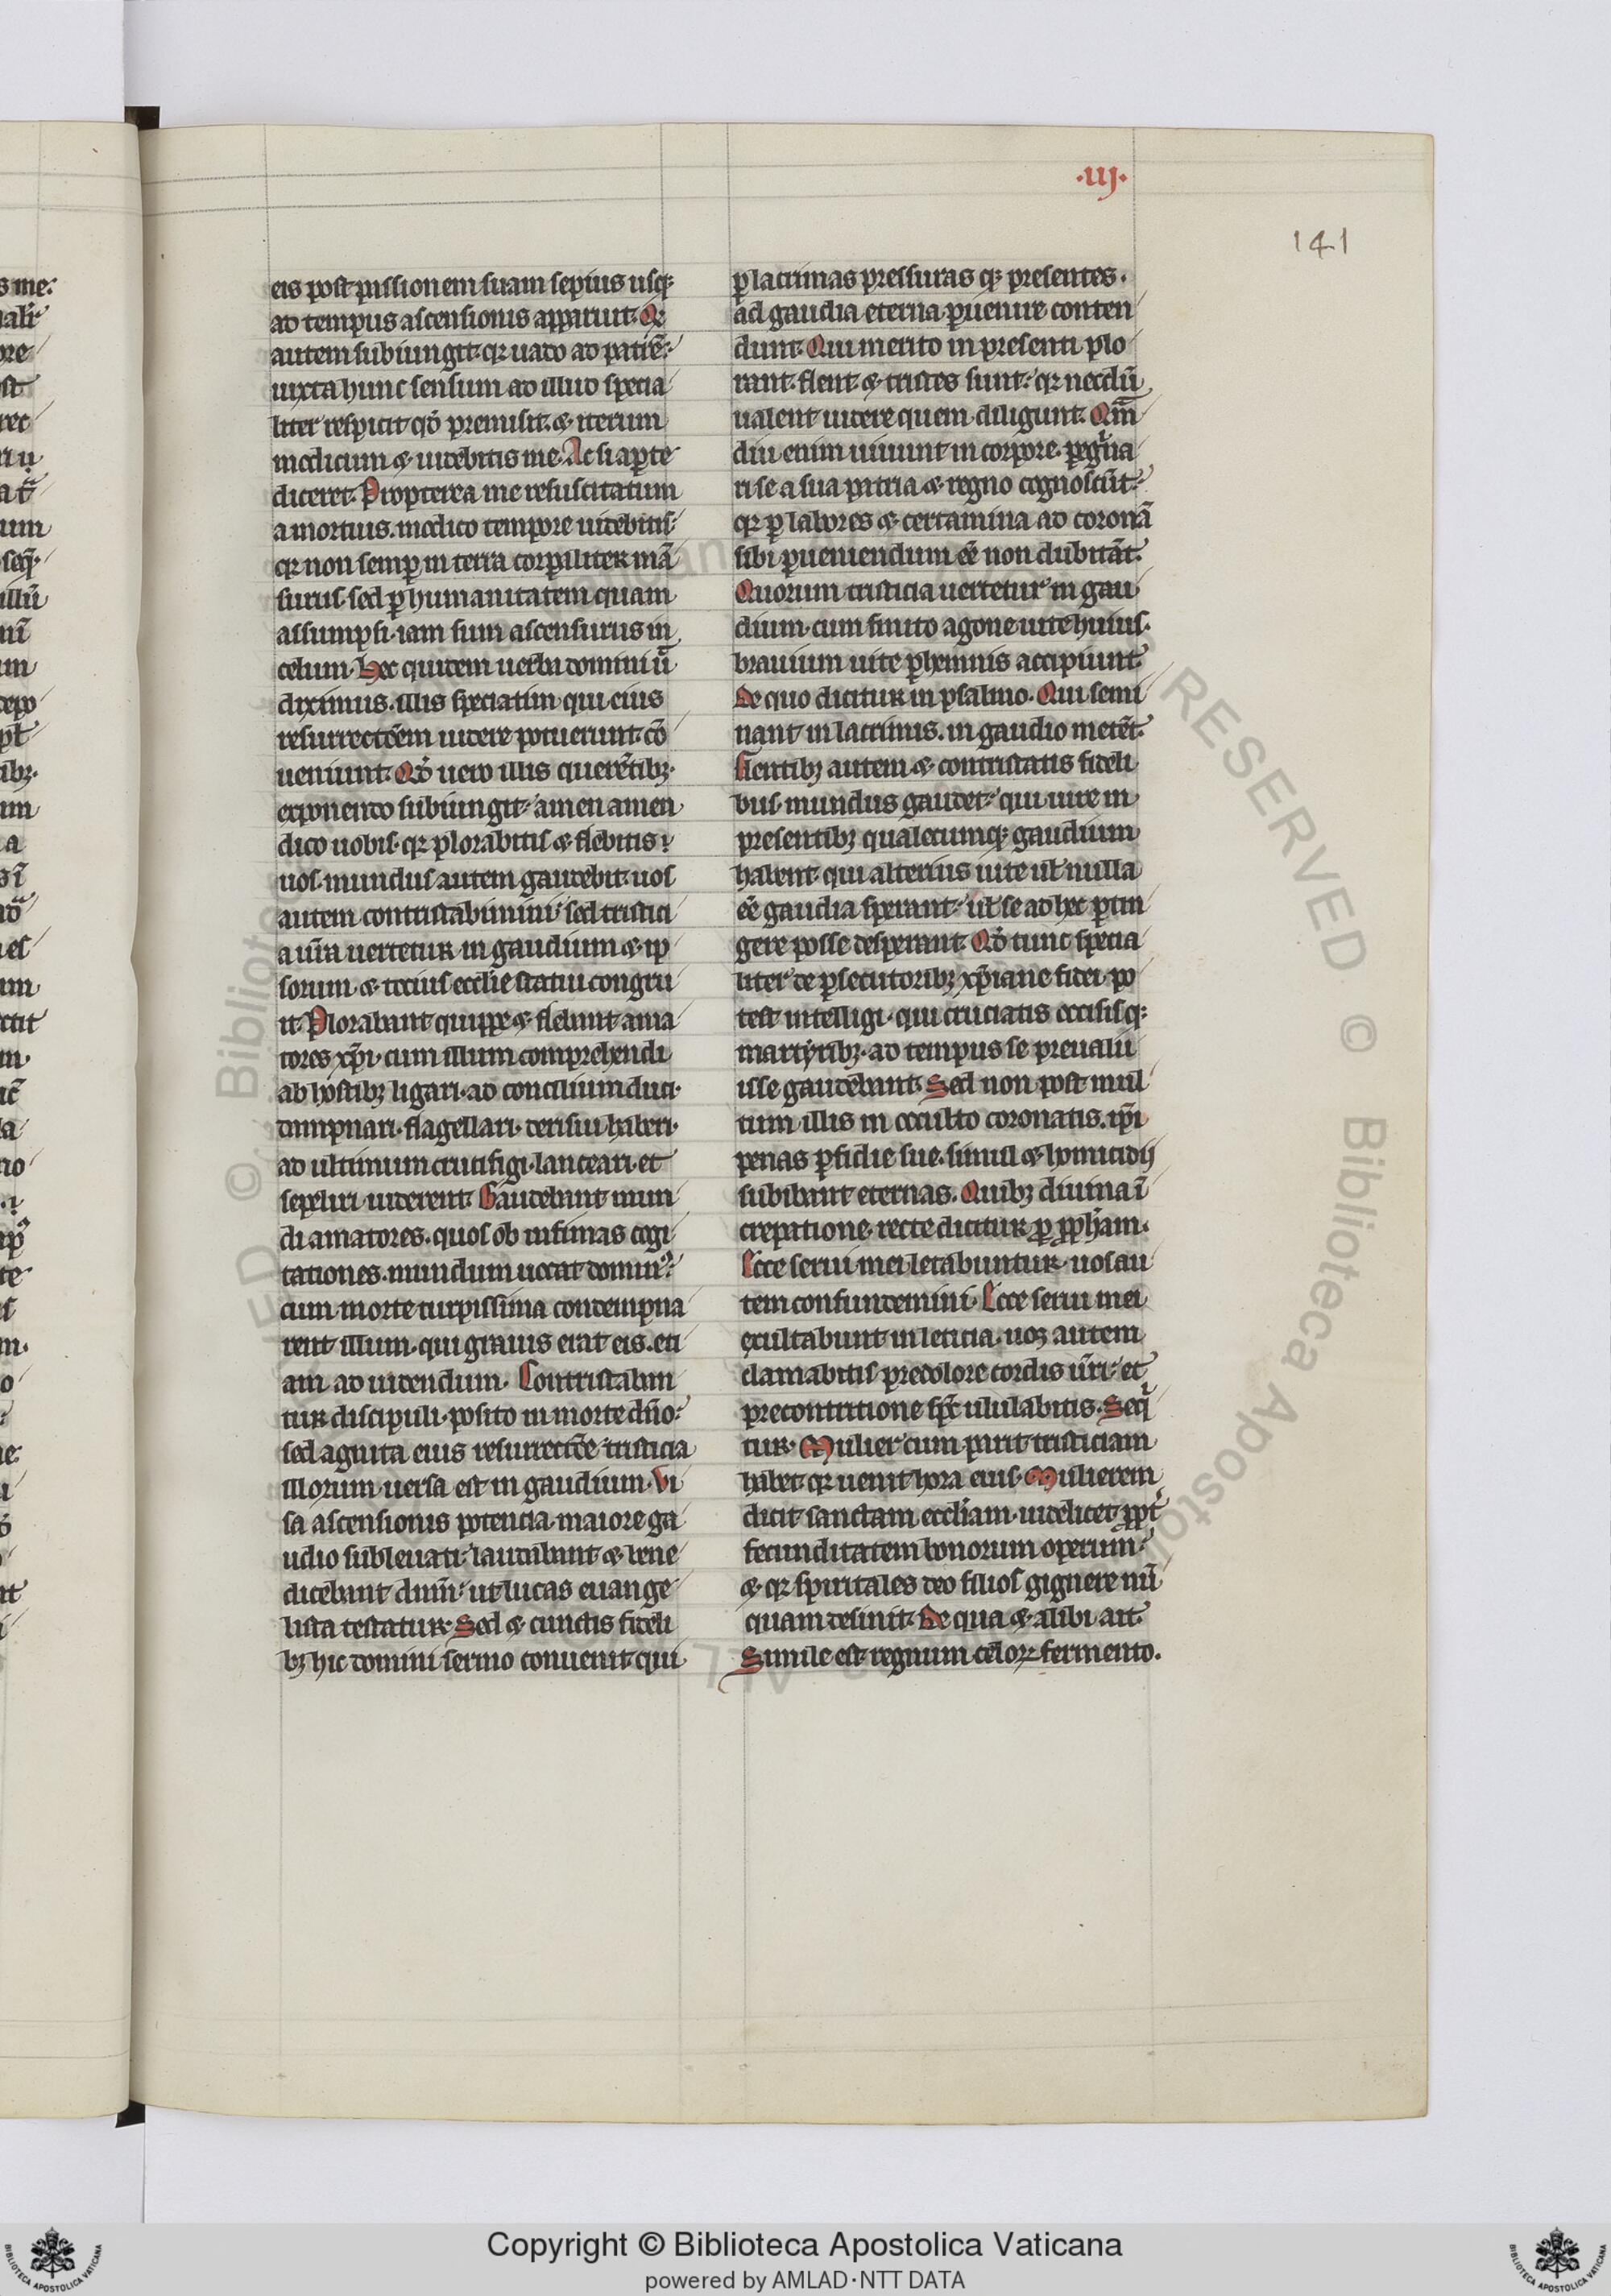 .iij.
141
eis post passionem suam sepius usq;
ad tempus ascensionis apparuit. Qđ
autem subiungit. qꝛ uado ad patrē:
iuxta hunc sensum ad illud specia
liter respicit qđ premisit. & iterum
modicum & uidebitis me. Ac si aꝑte
diceret. Propterea me resuscitatum
a mortuis. modico tempore uidebitis:
qꝛ non semꝑ in terra corꝑaliter mā
surus. sed ꝑ humanitatem quam
assumpsi. iam sum ascensurus in
celum. Hec quidem uerba domini ū
diximus. illis speciatim qui eius
resurrectōem uidere potuerunt. cō
ueniunt. Qđ uero illis querētibꝫ.
exponendo subiungit. amen amen
dico uobis. qꝛ plorabitis & flebitis
uos. mundus autem gaudebit. uos
autem contristabimini. sed tristici
a ur̄a uertetur in gaudium. & ip
sorum & tocius eccl'ie statui congru
it. Plorabant quippe & flebant ama
tores xp̄i. cum illum comprehendi
ab hostibꝫ ligari. ad concilium duci.
dampnari. flagellari. derisui haberi.
ad ultimum crucifigi. lanceari. et
sepeliri uiderent. Gaudebant mun
di amatores. quos ob infimas cogi
tationes. mundum uocat dominꝰ.
cum morte turpissima condempna
rent illum. qui grauis erat eis. eti
am ad uidendum. Contristaban
tur discipuli. posito in morte dn̄o.
sed agnita eius resurrectōe. tristicia
illorum uersa est in gaudium. Vi
sa ascensionis potencia. maiore ga
udio subleuati. laudabant & bene
dicebant dnm̄. ut lucas euange
lista testatur. Sed & cunctis fideli
bꝫ hic domini sermo conuenit. qui
ꝑ lacrimas pressuras q; presentes.
ad gaudia eterna ꝑuenire conten
dunt. Qui merito in presenti plo
rant. flent & tristes sunt. qꝛ necdū
ualent uidere quem diligunt. Qm̄
diu enim uiuunt in corpore. ꝑegͥna
ri se a sua patria & regno cognoscūt.
qꝛ ꝑ labores & certamina ad coronā
sibi ꝑueniendum eē non dubitāt.
Quorum tristicia uertetur in gau
dium. cum finito agone uite huius.
brauium uite ꝑhennis accipiunt.
De quo dicitur in psalmo. Qui semi
nant in lacrimis. in gaudio metēt.
Flentibꝫ autem & contristatis fideli
bus. mundus gaudet. qui uite in
presentibꝫ qualecumq; gaudium
habent. qui alterius uite ul' nulla
eē gaudia sperant. ul' se ad hec ꝑtin
gere posse desperant. Qđ tunc specia
liter de ꝑsecutoribꝫ xp̄iane fidei. po
test intelligi. qui cruciatis occisisq;
martyribꝫ. ad tempus se preualu
isse gaudebant. Sed non post mul
tum illis in occulto coronatis. ip̄i
penas ꝑfidie sue. simul & homicidij
subibant eternas. Quibꝫ diuina ī
crepatione. recte dicitur ꝑ ꝓph'am.
Ecce serui mei letabuntur. uos au
tem confundemini. Ecce serui mei
exultabunt in leticia. uos autem
clamabitis pre dolore cordis ur̄i. et
pre contritione sp̄c ululabitis. Seqͥ
tur. Mulier cum parit tristiciam
habet. qꝛ uenit hora eius. Mulierem
dicit sanctam eccl'iam. uidelicet ꝓpt'
fecunditatem bonorum operum.
& qꝛ spiritales deo filios gignere nū
quam desinit. De qua & alibi ait.
Simile est regnum celoꝝ fermento.
Copyright © Biblioteca Apostolica Vaticana
powered by AMLAD·NTT DATA